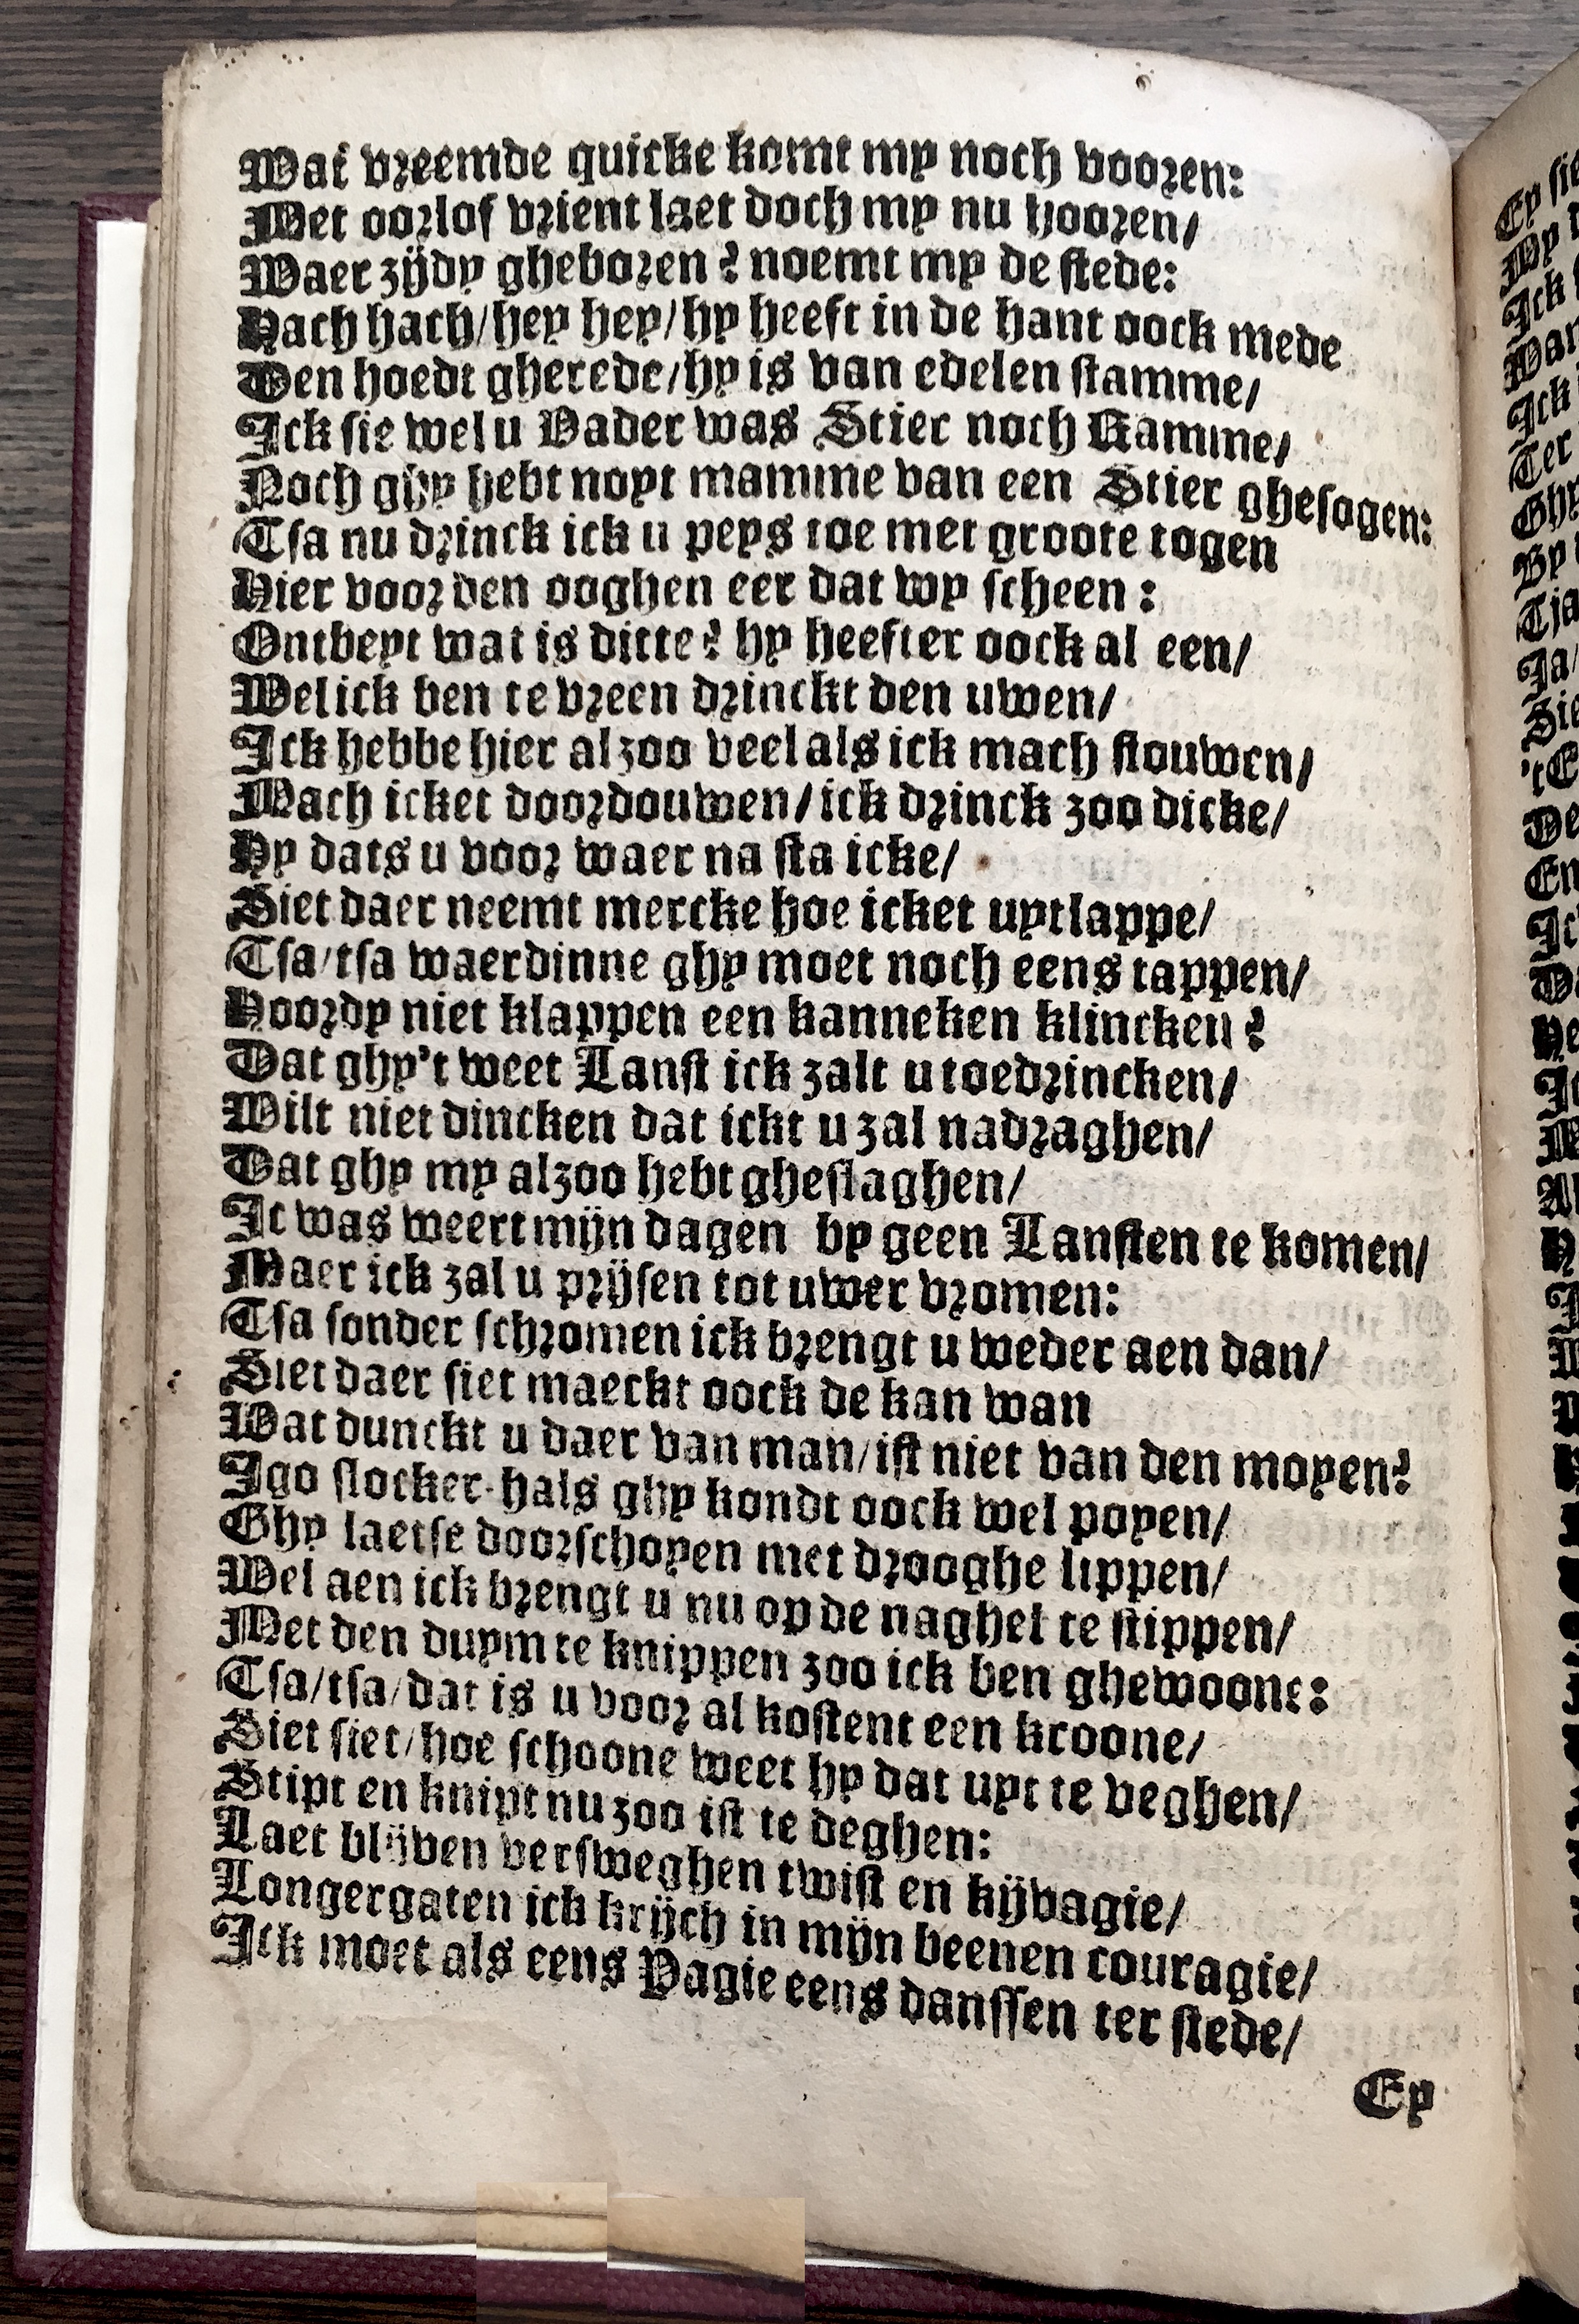 Wat vreemde quicke komt my noch vooren:
Met oorlof vrient laet doch my nu hooren/
Waer zijdy gheboren? noemt my de stede:
Hach hach/hey hey/hy heeft in de hant oock mede
Den hoedt gherede/hy is van edelen stamme/
Ick sie wel u Vader was Stier noch Ramme/
Noch ghy hebt noyt mamme van een Stier ghesogen:
Tsa nu drinck ick u peys toe met groote togen
Hier voor den ooghen eer dat wy scheen:
Ontbeyt wat is ditte? hy heefter oock al een/
Wel ick ben te vreen drinckt den uwen/
Ick hebbe hier al zoo veel als ick mach stouwen/
Mach icket doordouwen/ick drinck zoo dicke/
Hy dats u voor waer na sta icke/
Siet daer neemt mercke hoe icket uytlappe/
Tsa/tsa waerdinne ghy moet noch eens tappen/
Hoordy niet klappen een kanneken klincken?
Dat ghy't weet Lanst ick zalt u toedrincken/
Wilt niet dincken dat ickt u zal nadraghen/
Dat ghy my alzoo hebt gheslaghen/
It was weert mijn dagen by geen Lansten te komen/
Maer ick zal u prijsen tot uwer vromen:
Tsa sonder schromen ick brengt u weder aen dan/
Siet daer siet maeckt oock de kan wan
Wat dunckt u daer van man/ist niet van den moyen?
Jgo slocker-hals ghy kondt oock wel poyen/
Ghy laetse doorschoyen met drooghe lippen/
Wel aen ick brengt u nu op de naghel te stippen/
Met den duym te knippen zoo ick ben ghewoone:
Tsa/tsa/dat is u voor al kostent een kroone/
Siet siet/hoe schoone weet hy dat uyt te veghen/
Stipt en knipt nu zoo ist te deghen:
Laet blijven versweghen twist en kijvagie/
Longergaten ick krijch in mijn beenen couragie/
Ick moet als eens Pagie eens danssen ter stede/
Ey